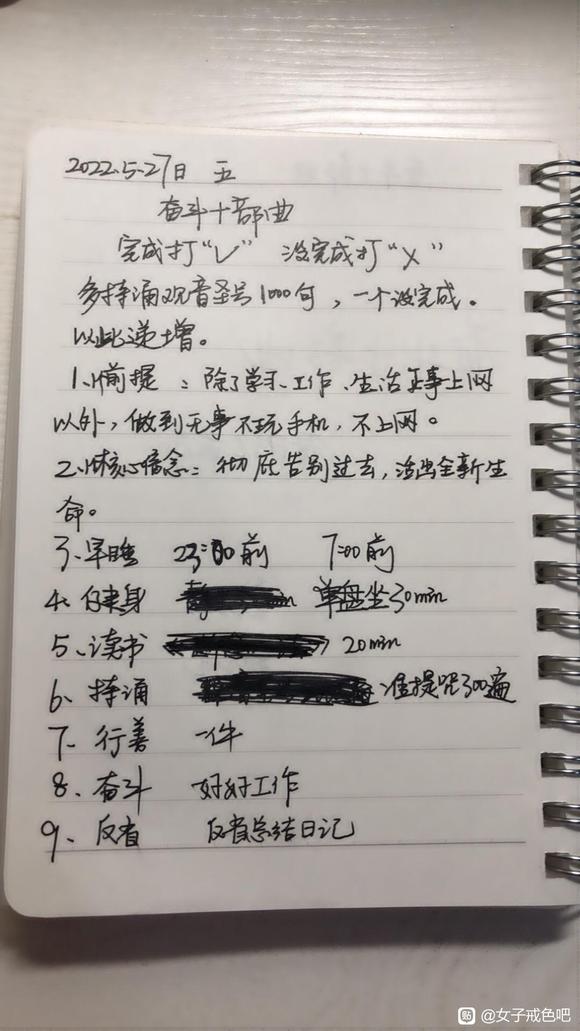 2022.5.27日 五
奋斗十部曲
完成打“√” 没完成打“×”
多持诵观音圣号1000句，一个没完成。
以此递增。
1、前提：除了学习、工作、生活正事上网
以外，做到无事不玩手机，不上网。
2、核心信念：彻底告别过去，活出全新生
命。
3、早睡 23:00前 7:00前
4、健身 单盘坐30min
5、读书 20min
6、持诵 准提咒300遍
7、行善 一件
8、奋斗 好好工作
9、反省 反省总结日记
贴 @女子戒色吧